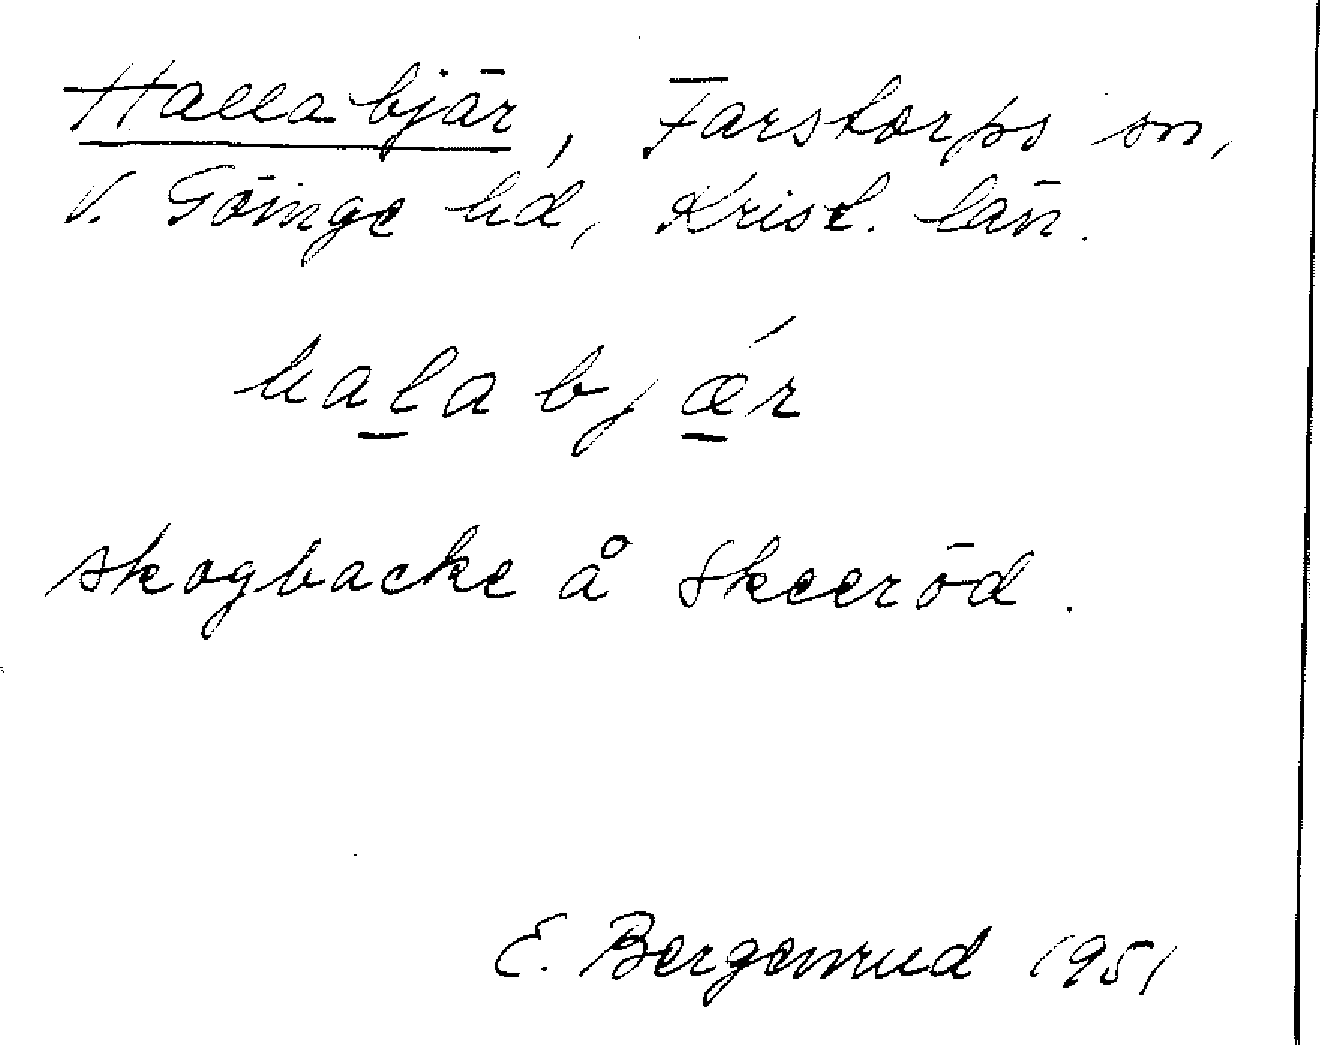 Hallabjär, Farstorps sn,
V. Göinge hd, Krist. län.
halabjǽr
skogbacke å Skeeröd.
E. Bergenrud 1951